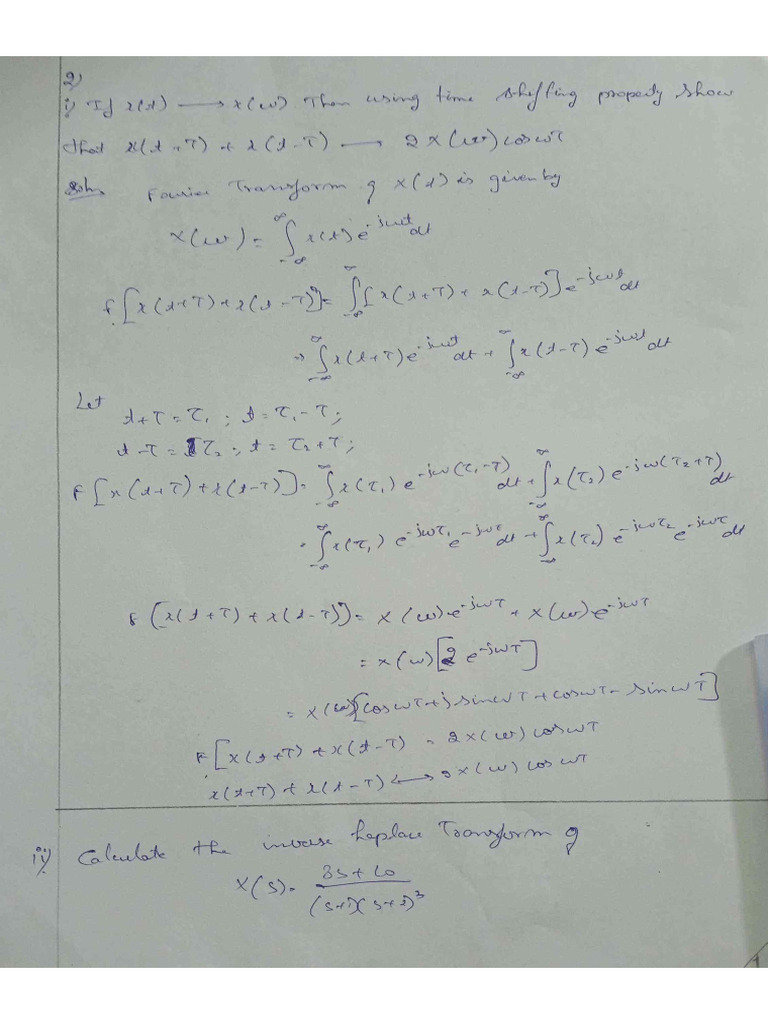 2)
i) If x(t) ⟶ x(ω) Then using time Shifting property show
that x(t+τ) + x(t-τ) ⟶ 2x(ω) cosωτ
Soln Fourier Transform of x(t) is given by
x(ω) = ∫_{-∞}^{∞} x(t) e^{-jωt} dt
F[x(t+τ)+x(t-τ)] = ∫_{-∞}^{∞} [x(t+τ) + x(t-τ)] e^{-jωt} dt
⇒ ∫_{-∞}^{∞} x(t+τ) e^{-jωt} dt + ∫_{-∞}^{∞} x(t-τ) e^{-jωt} dt
Let
t+τ = τ₁ ; t = τ₁-τ ;
t-τ = τ₂ ; t = τ₂+τ ;
F[x(t+τ)+x(t-τ)] = ∫_{-∞}^{∞} x(τ₁) e^{-jω(τ₁-τ)} dt + ∫_{-∞}^{∞} x(τ₂) e^{-jω(τ₂+τ)} dt
= ∫_{-∞}^{∞} x(τ₁) e^{-jωτ₁} e^{-jωτ} dt + ∫_{-∞}^{∞} x(τ₂) e^{-jωτ₂} e^{-jωτ} dt
F[x(t+τ) + x(t-τ)] = x(ω) e^{-jωτ} + x(ω) e^{-jωτ}
= x(ω) [2 e^{-jωτ}]
= x(ω) [cosωτ + j sinωτ + cosωτ - sinωτ]
F[x(t+τ) + x(t-τ) = 2x(ω) cosωτ
x(t+τ) + x(t-τ) ⟷ 2x(ω) cosωτ
ii) Calculate the inverse Laplace Transform of
X(s) = (3s+10)/((s+1)(s+2)³)